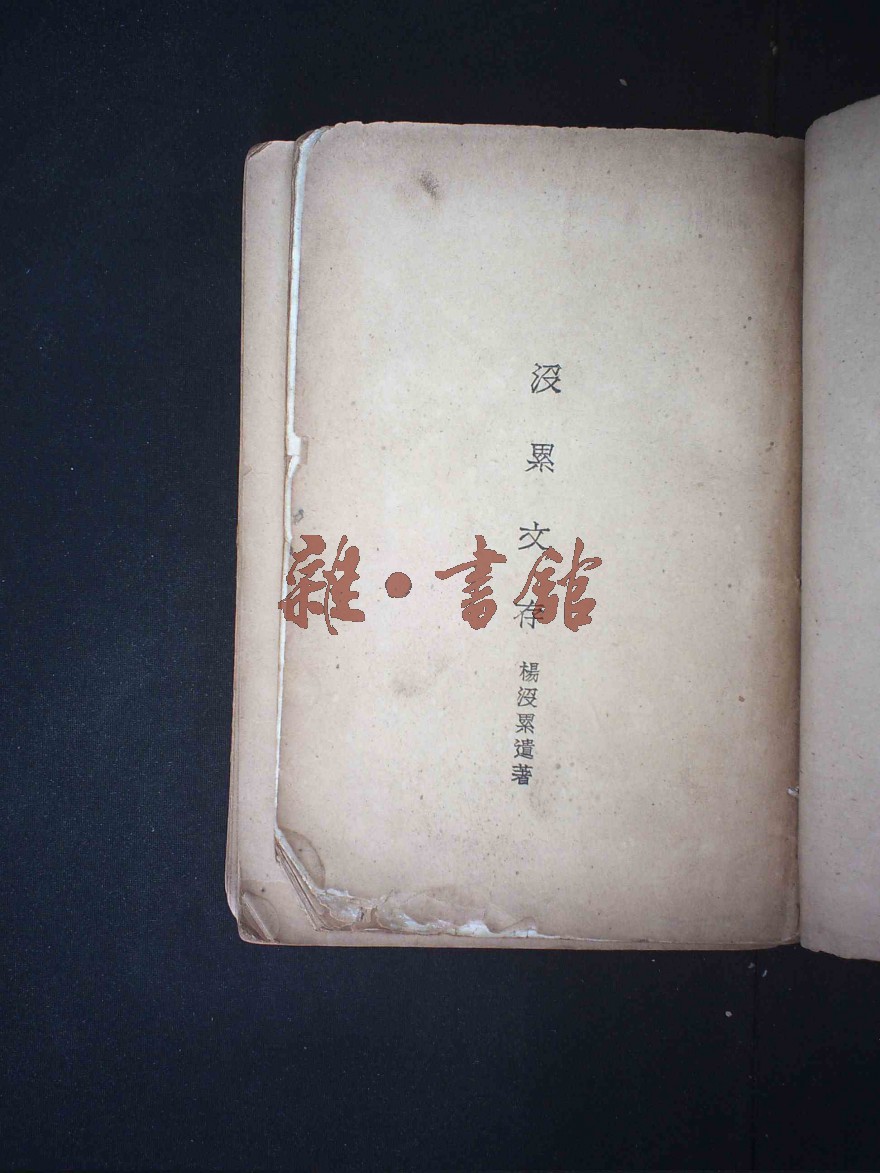 沒累文存
楊沒累遺著
雜·書館